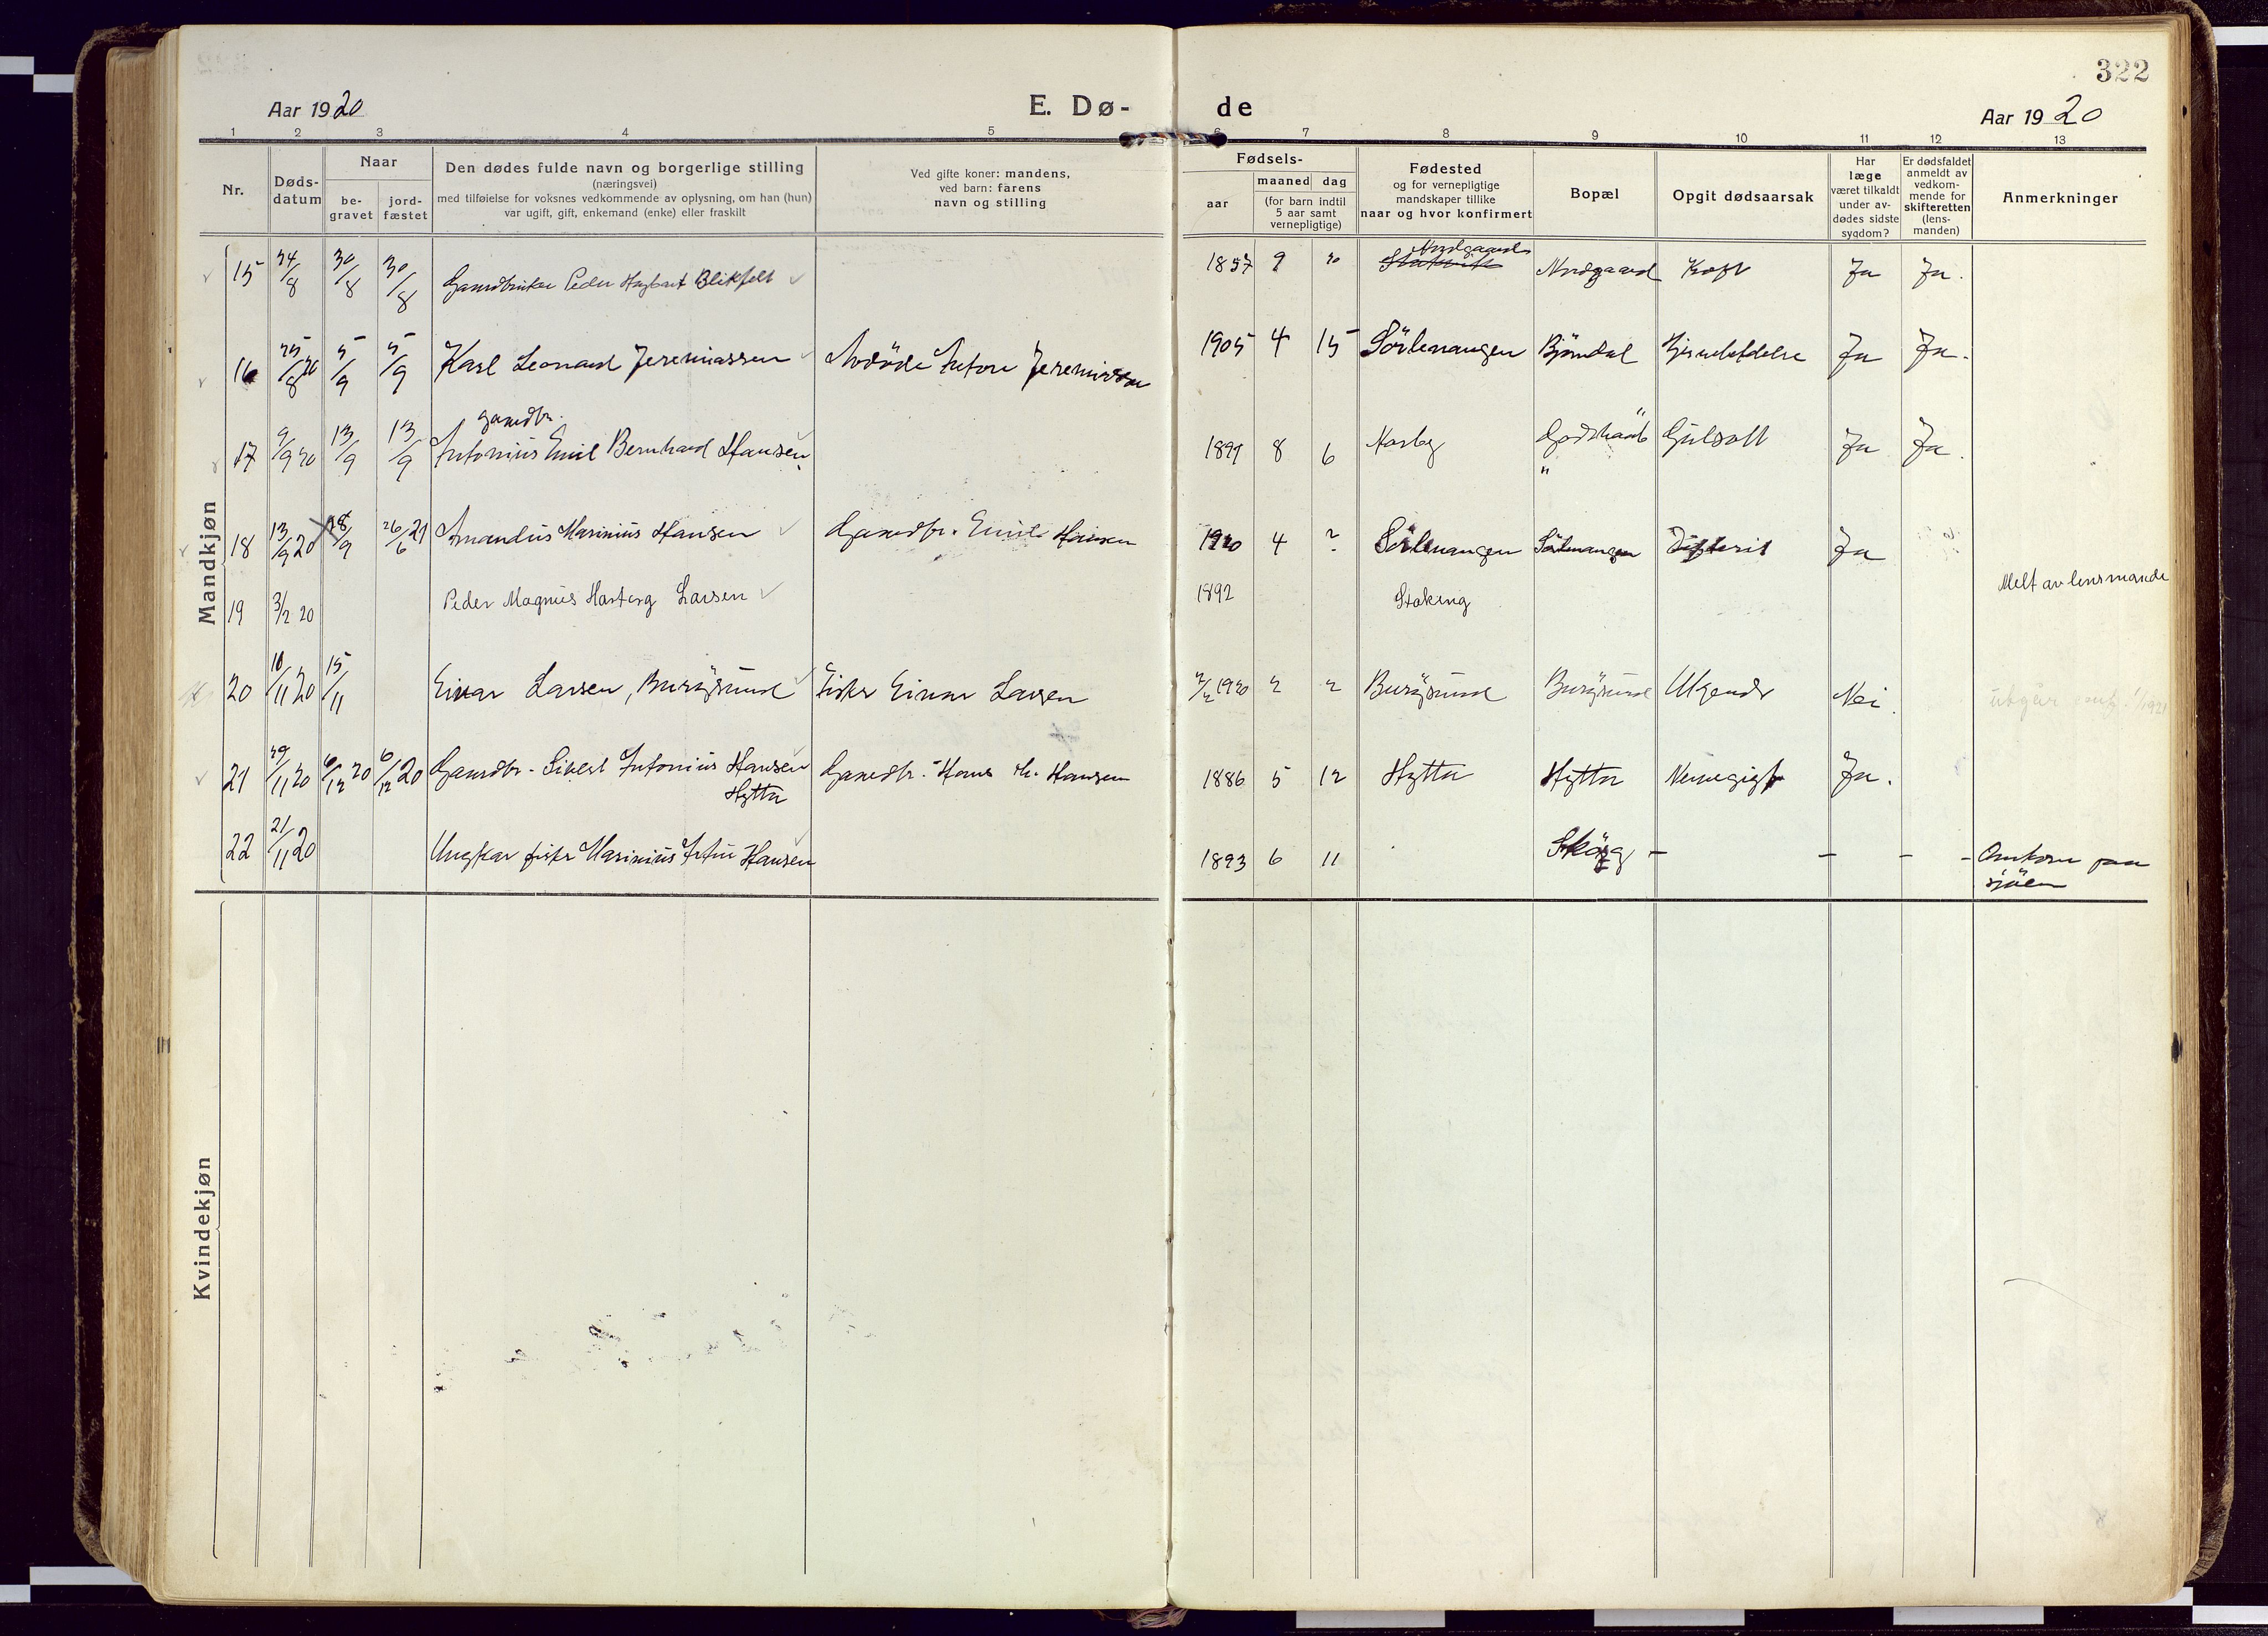 322
Aar 1920
E. Dø-
de
Aar 1920
1 2 3 4 5 6 7 8 9 10 11 12 13
Nr.
Døds-
datum
Naar
be-
gravet
jord-
fæstet
Den dødes fulde navn og borgerlige stilling
(næringsvei)
med tilføielse for voksnes vedkommende av oplysning, om han (hun)
var ugift, gift, enkemand (enke) eller fraskilt
Ved gifte koner: mandens,
ved barn: farens
navn og stilling
Fødsels-
aar
maaned dag
(for barn indtil
5 aar samt
vernepligtige)
Fødested
og for vernepligtige
mandskaper tillike
naar og hvor konfirmert
Bopæl
Opgit dødsaarsak
Har
læge
været tilkaldt
under av-
dødes sidste
sygdom?
Er dødsfaldet
anmeldt av
vedkom-
mende for
skifteretten
(lens-
manden)
Anmerkninger
Mandkjøn
Nordgaard
15 24/8 30/8 30/8 Gaardbruker Peder Hagbart Blikfelt 1857 9 20 Nordgaard Ja Ja.
16 25/8 20 5/9 5/9 Karl Leonard Jeremiassen Anton Jeremiassen 1905 4 15 Sörlenangen Björndal Ja Ja.
gaardbr.
17 9/9 20 13/9 13/9 Antonius Emil Bernhard Hansen 1897 8 6 Gulsott Ja Ja.
"
18 13/9 20 18/9 26/6 21 Amandus Marinius Hansen Gaardbr. Emil Hansen 1920 4 ? Sörlenangen Sörlenangen Difterit Ja
19 3/2 20 Peder Magnus Larsen 1892 Melt av lensmande
20 10/11 20 15/11 Einar Larsen, Burøysund Fisker Einar Larsen 2/2 1920 2 2 Burøysund Burøysund Ukjendt Nei.
21 29/11 20 6/12 20 6/12 20 Gaardbr. Sivert Antonius Hansen Gaardbr. Hans Hansen 1886 5 12 Hytta Hytta Ja.
Hytta
22 21/11 20 Ungkar fisker Marinius Hansen 1893 6 11 - - - - Omkom paa
sjöen
Kvindekjøn